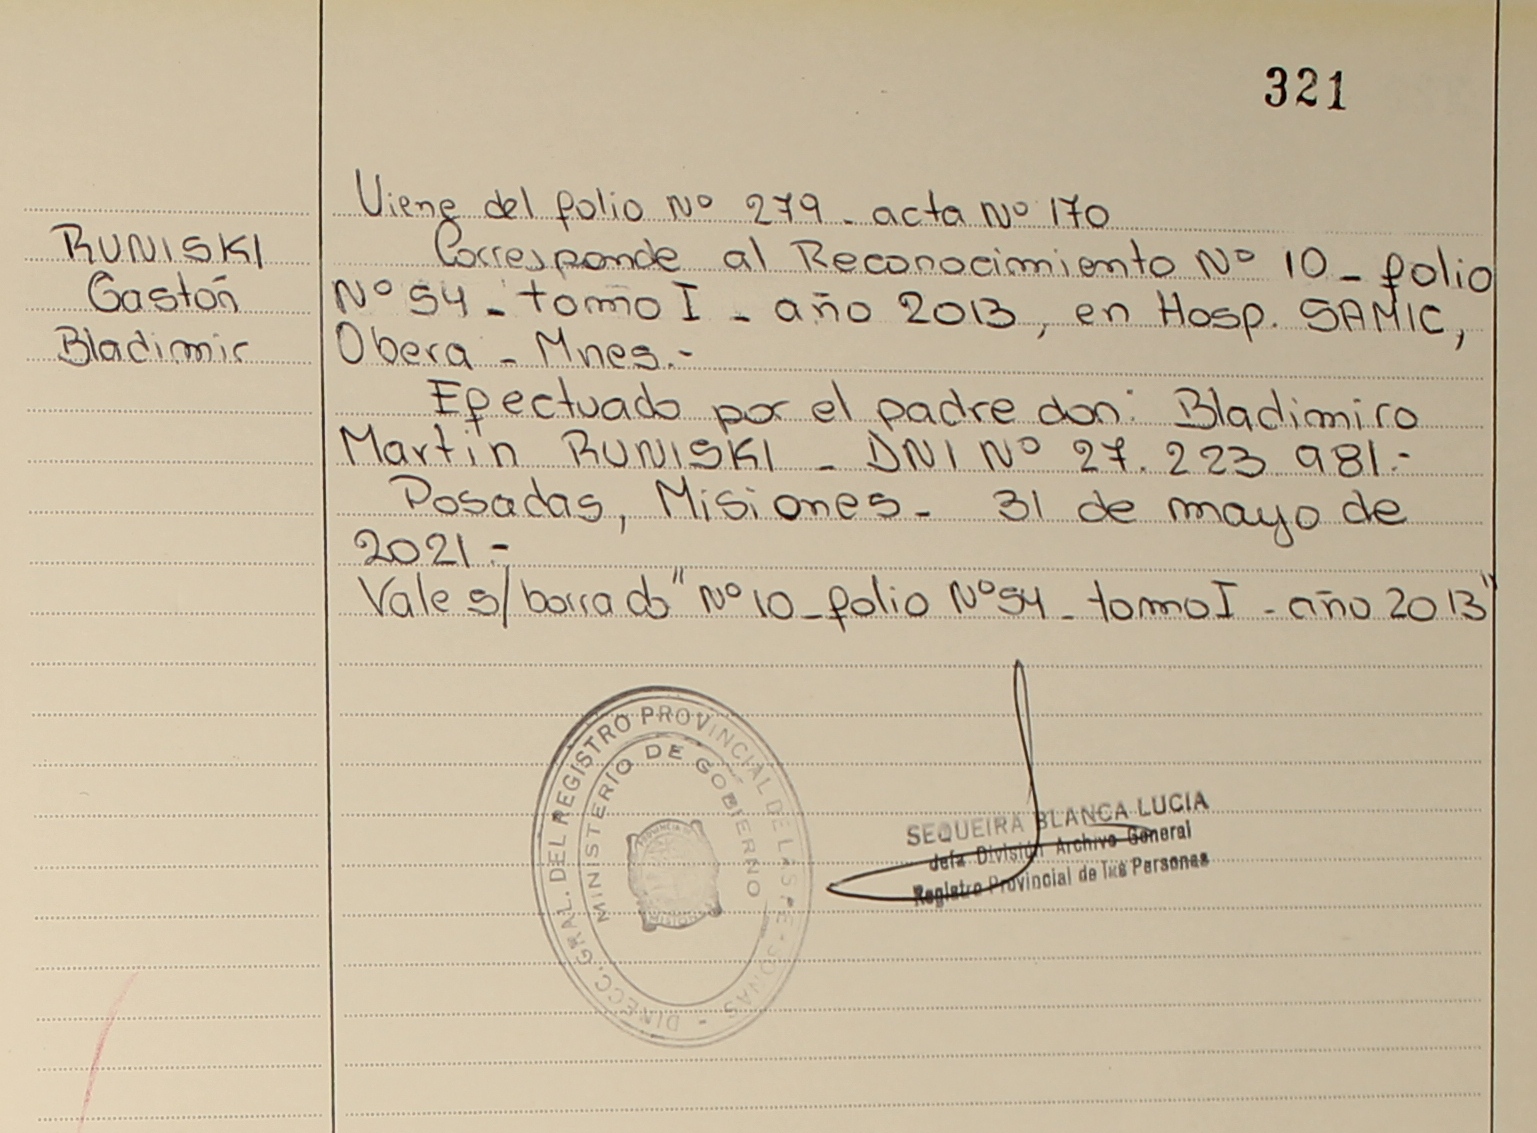 321
Viene del folio Nº 279 - acta Nº 170
RUNISKI
Gastón
Bladimir
Corresponde al Reconocimiento Nº 10 - folio
Nº 54 - tomo I - año 2013, en Hosp. SAMIC,
Obera - Mnes.-
Efectuado por el padre don: Bladimiro
Martin RUNISKI - DNI Nº 27.223 981.-
Posadas, Misiones - 31 de mayo de
2021.-
Vale s/ borrado "Nº 10 - folio Nº 54 - tomo I - año 2013"
DIRECC. GRAL. DEL REGISTRO PROVINCIAL DE LAS PERSONAS -
MINISTERIO DE GOBIERNO
SEQUEIRA BLANCA LUCIA
Jefa División Archivo General
Registro Provincial de las Personas